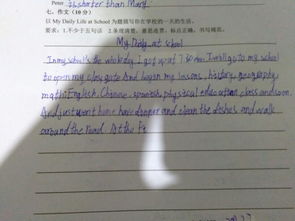 Peter is shorter than Mary.
七、作文(10分)
以 My Daily Life at School 为题描写你在学校的一天的生活。
要求:1.不少于五句话 2.条理清楚,意思连贯,标点正确,书写规范。
My Daily at school
In my school's the whole day. I got up at 7:30 am. I will go to my school
to open my class gate And began my lessons, history, geography
math, English, Chinese, spanish, physical education class and soon.
And just went home have dinner and clean the dishes and walk
around the road. At the